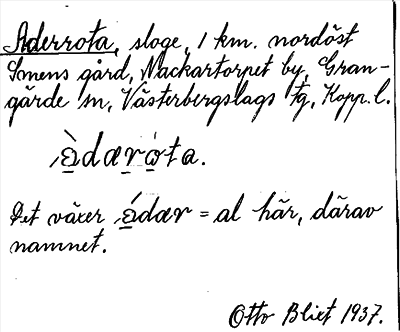 Aderrota, sloge, 1 km. nordöst
Smens gård, Nackartorpet by, Gran-
gärde sn, Västerbergslags fg, Kopp. l.
àdærota.
Det växer ádær = al här, därav
namnet.
Otto Blixt 1937.